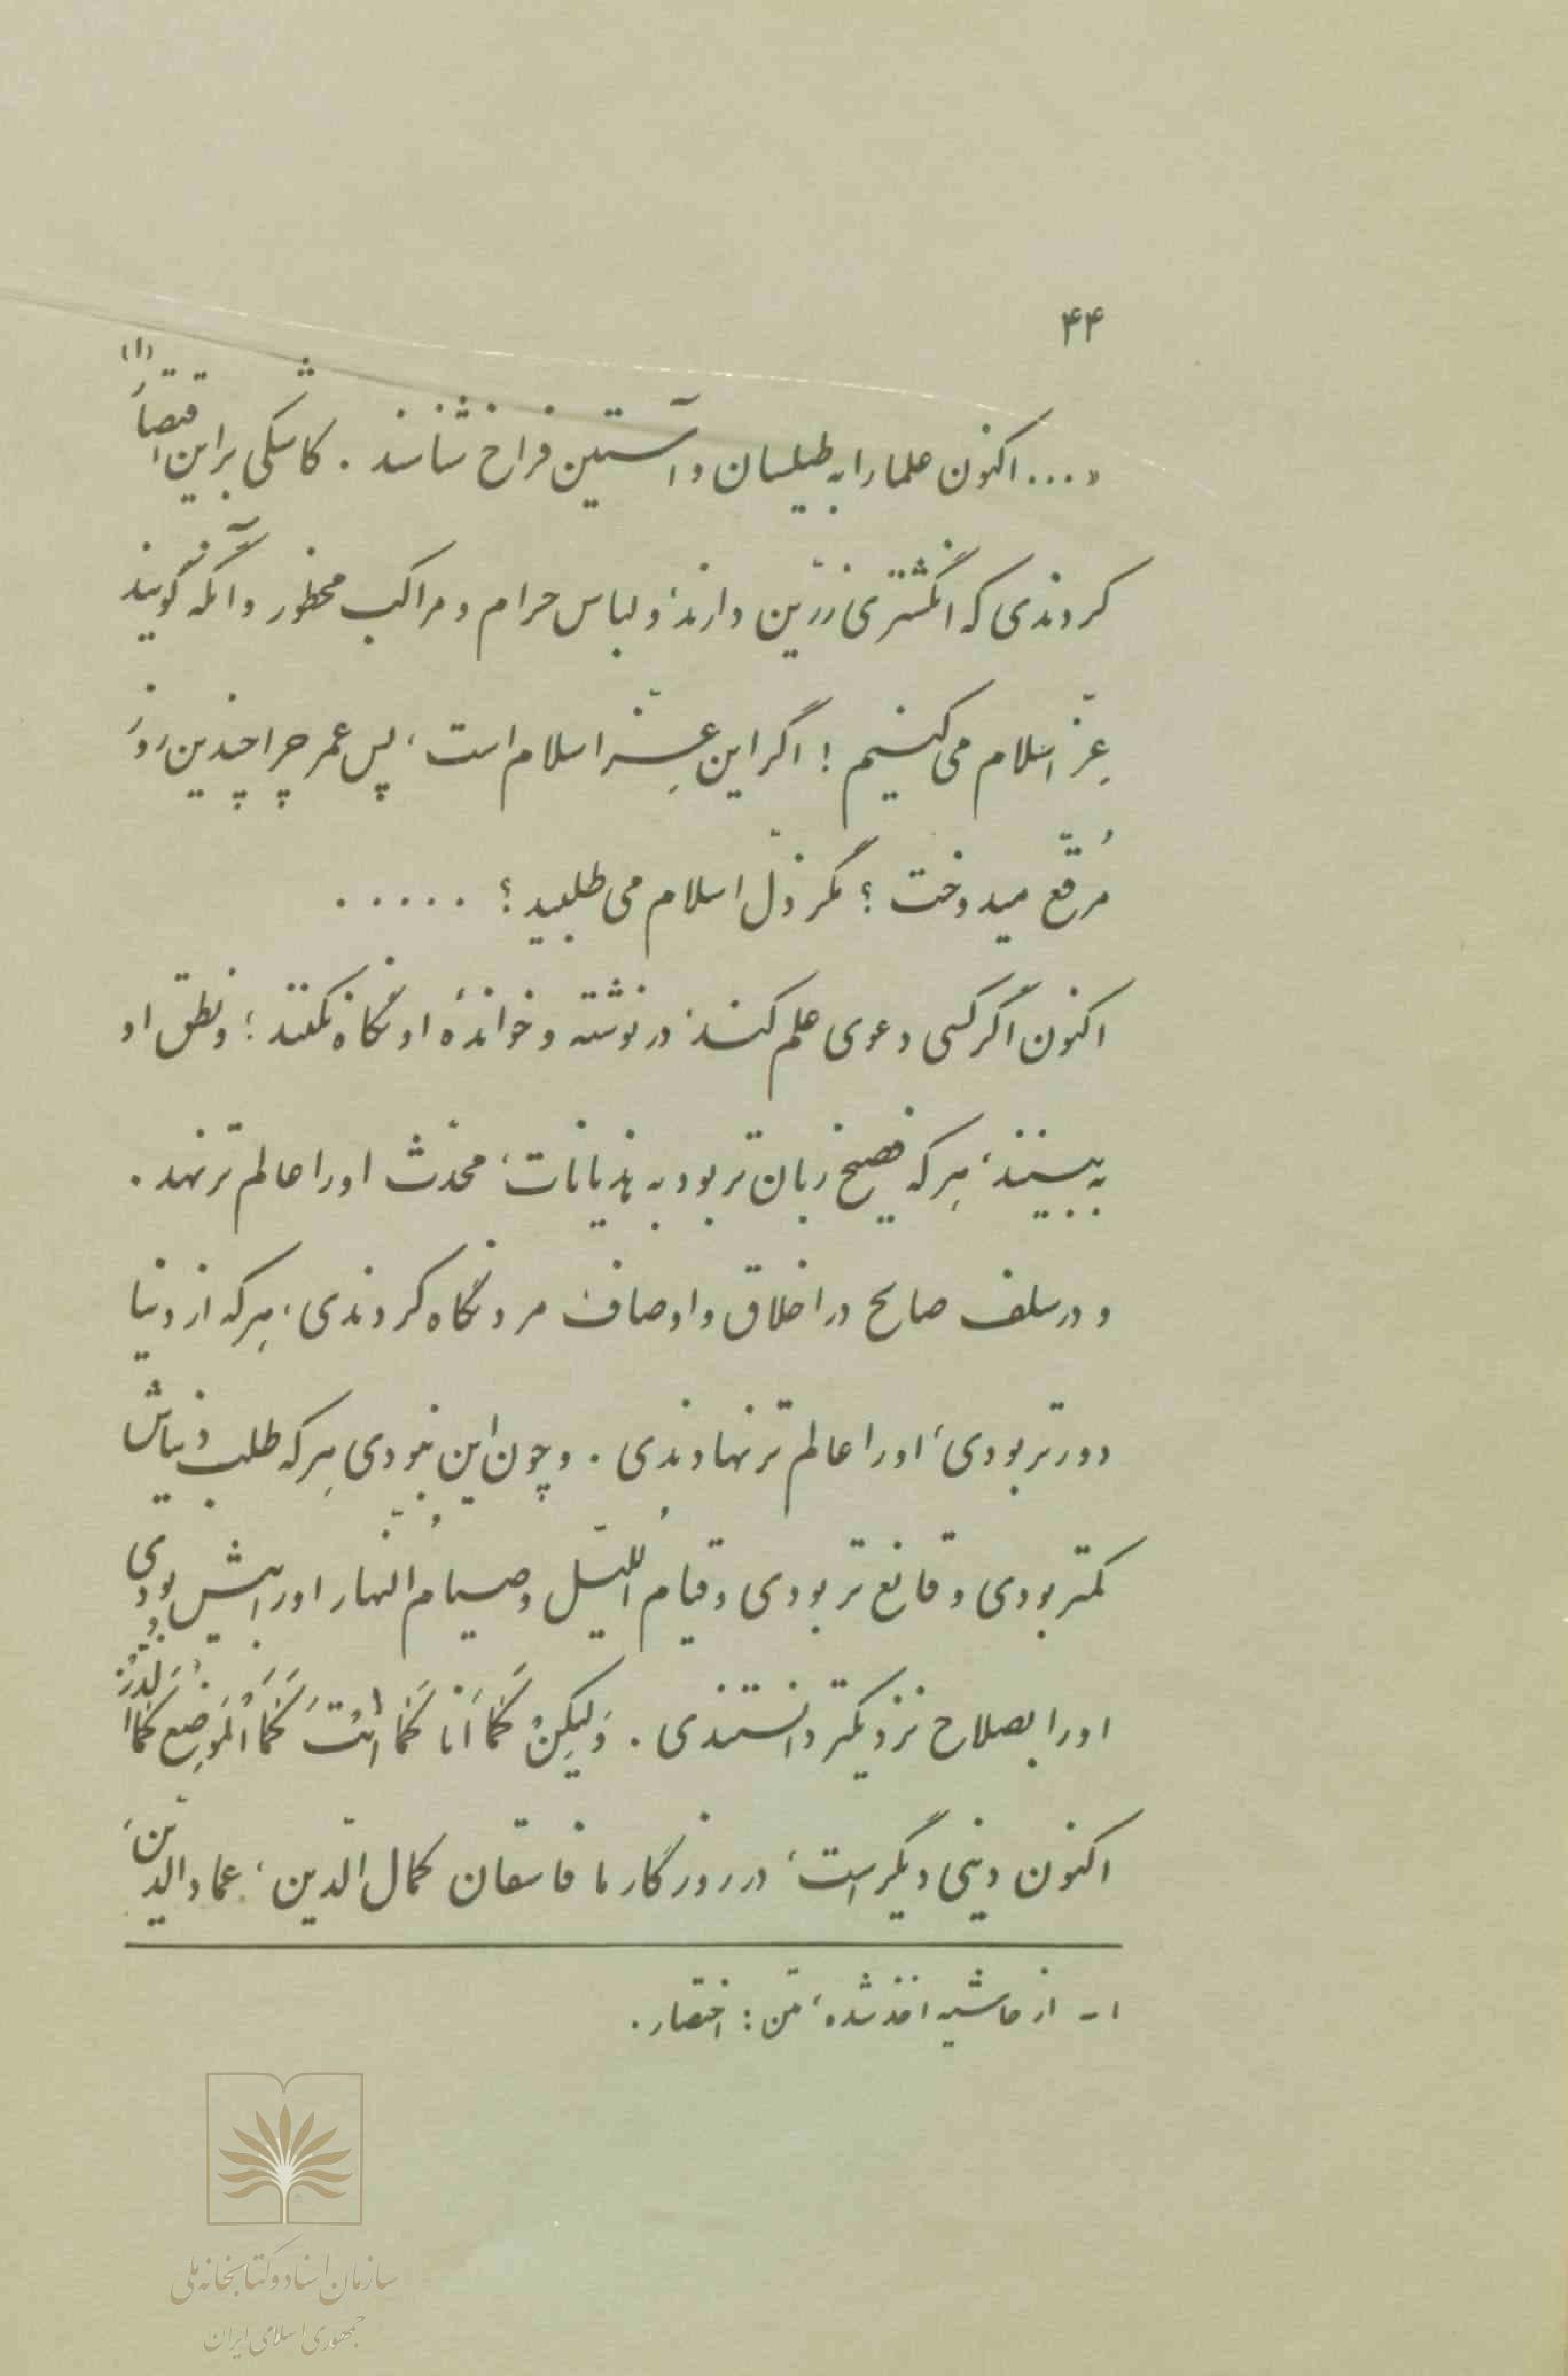 ۴۴
«.... اکنون علما را به طیلسان و آستین فراخ شناسند . کاشکی بر این اقتصار (۱)
کردندی که انگشتری زرّین دارند، و لباس حرام و مراکب محظور و آنگه گویند
عِزّ اسلام می کنیم ! اگر این عِزّ اسلام است ، پس عمر چرا چندین روز
مُرقّع میدوخت ؟ مگر ذلّ اسلام می طلبید ؟ .....
اکنون اگر کسی دعوی علم کند، در نوشته و خواندهٔ او نگاه نکنند ؛ و نطق او
به بینند ، هرکه فصیح زبان تر بود به هذیانات ، محدث او را عالم تر نهد .
و در سلف صالح در اخلاق و اوصاف مرد نگاه کردندی ، هرکه از دنیا
دورتر بودی ، او را عالم تر نهادندی . و چون این نبودی هرکه طلب دنیاش
کمتر بودی و قانع تر بودی و قیامُ اللیّل و صیامُ النّهار او را بیش بودی
او را بصلاح نزدیکتر دانستندی . وَلیکِنْ کَمٰا اَنَا کَمٰا اَنْتَ کَمَا الْمَوضِع کَمَا
اکنون دینی دیگر است ، در روزگار ما فاسقان کمال الدّین ، عماد الدّین ،
۱ـ از حاشیه اخذ شده ، متن : اختصار .
سازمان اسناد و کتابخانه ملی
جمهوری اسلامی ایران